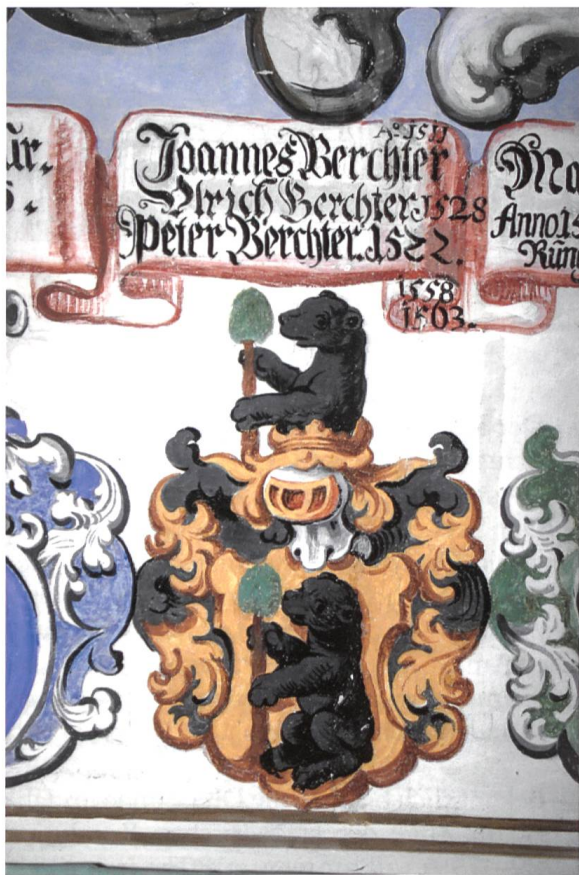 Aº 1511
Joannes Berchter
Ulrich Berchter 1528
Peter Berchter. 1522.
1558
1503.
ür.
Ma
Anno 15
Rüng